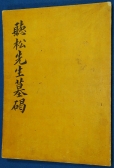 聽松先生墓碣